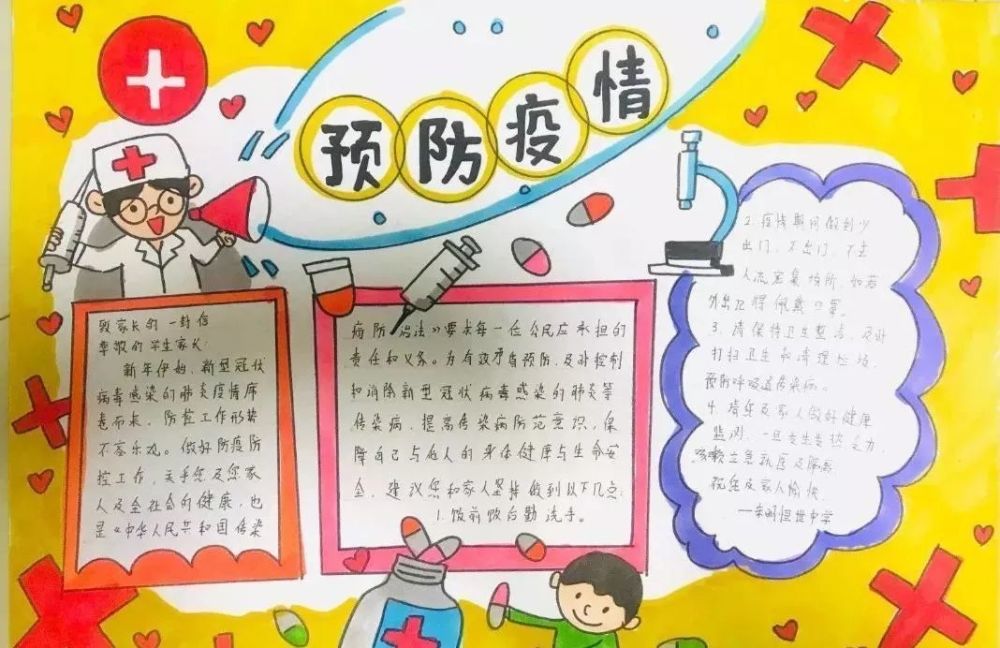 预防疫情
致家长的一封信
尊敬的学生家长:
新年伊始,新型冠状
病毒感染的肺炎疫情席
卷而来,防控工作形势
不容乐观。做好防疫防
控工作,关乎您及您家
人及全社会的健康,也
是《中华人民共和国传染
病防治法》要求每一位公民应承担的
责任和义务。为有效预防,及时控制
和消除新型冠状病毒感染的肺炎等
传染病,提高传染病防范意识,保
障自己与他人的身体健康与生命安
全,建议您和家人坚持做到以下几点:
1.饭前饭后勤洗手。
2.疫情期间做到少
出门,不出门,不去
人流密集场所,如若
外出记得佩戴口罩。
3.请保持卫生整洁,及时
打扫卫生和清理垃圾,
预防呼吸道传染病。
4.请您及家人做好健康
监测,一旦发生发热乏力
咳嗽立急就医及隔离
祝您及家人愉快
中学